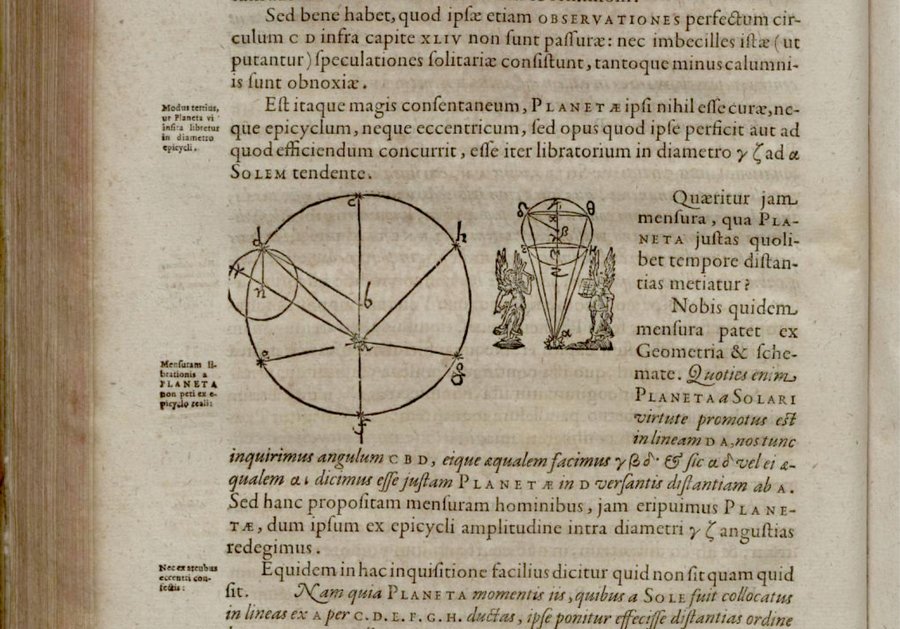 Sed bene habet, quod ipsæ etiam OBSERVATIONES perfectum cir-
culum C D infra capite XLIV non sunt passuræ: nec imbecilles istæ (ut
putantur) speculationes solitariæ consistunt, tantoque minus calumni-
is sunt obnoxiæ.
Modus tertius,
ut Planeta vi
insita libretur
in diametro
epicycli.
Est itaque magis consentaneum, PLANETÆ ipsi nihil esse curæ, ne-
que epicyclum, neque eccentricum, sed opus quod ipse perficit aut ad
quod efficiendum concurrit, esse iter libratorium in diametro γ ζ ad α
SOLEM tendente.
c
d
h
n
b
g
f
θ
β
α
Quæritur jam
mensura, qua PLA-
NETA justas quoli-
bet tempore distan-
tias metiatur?
Nobis quidem
mensura patet ex
Geometria & sche-
mate. Quoties enim
PLANETA a SOLARI
virtute promotus est
in lineam D A, nos tunc
Mensuram li-
brationis a
PLANETA
non peti ex e-
picyclo reali:
inquirimus angulum C B D, eique æqualem facimus γ β δ· & sic α δ vel ei æ-
qualem α ι dicimus esse justam PLANETÆ in D versantis distantiam ab A.
Sed hanc propositam mensuram hominibus, jam eripuimus PLANE-
TÆ, dum ipsum ex epicycli amplitudine intra diametri γ ζ angustias
redegimus.
Nec ex arcubus
eccentri con-
fectis:
Equidem in hac inquisitione facilius dicitur quid non sit quam quid
sit. Nam quia PLANETA momentis iis, quibus a SOLE fuit collocatus
in lineas ex A per C. D. E. F. G. H. ductas, ipse ponitur effecisse distantias ordine